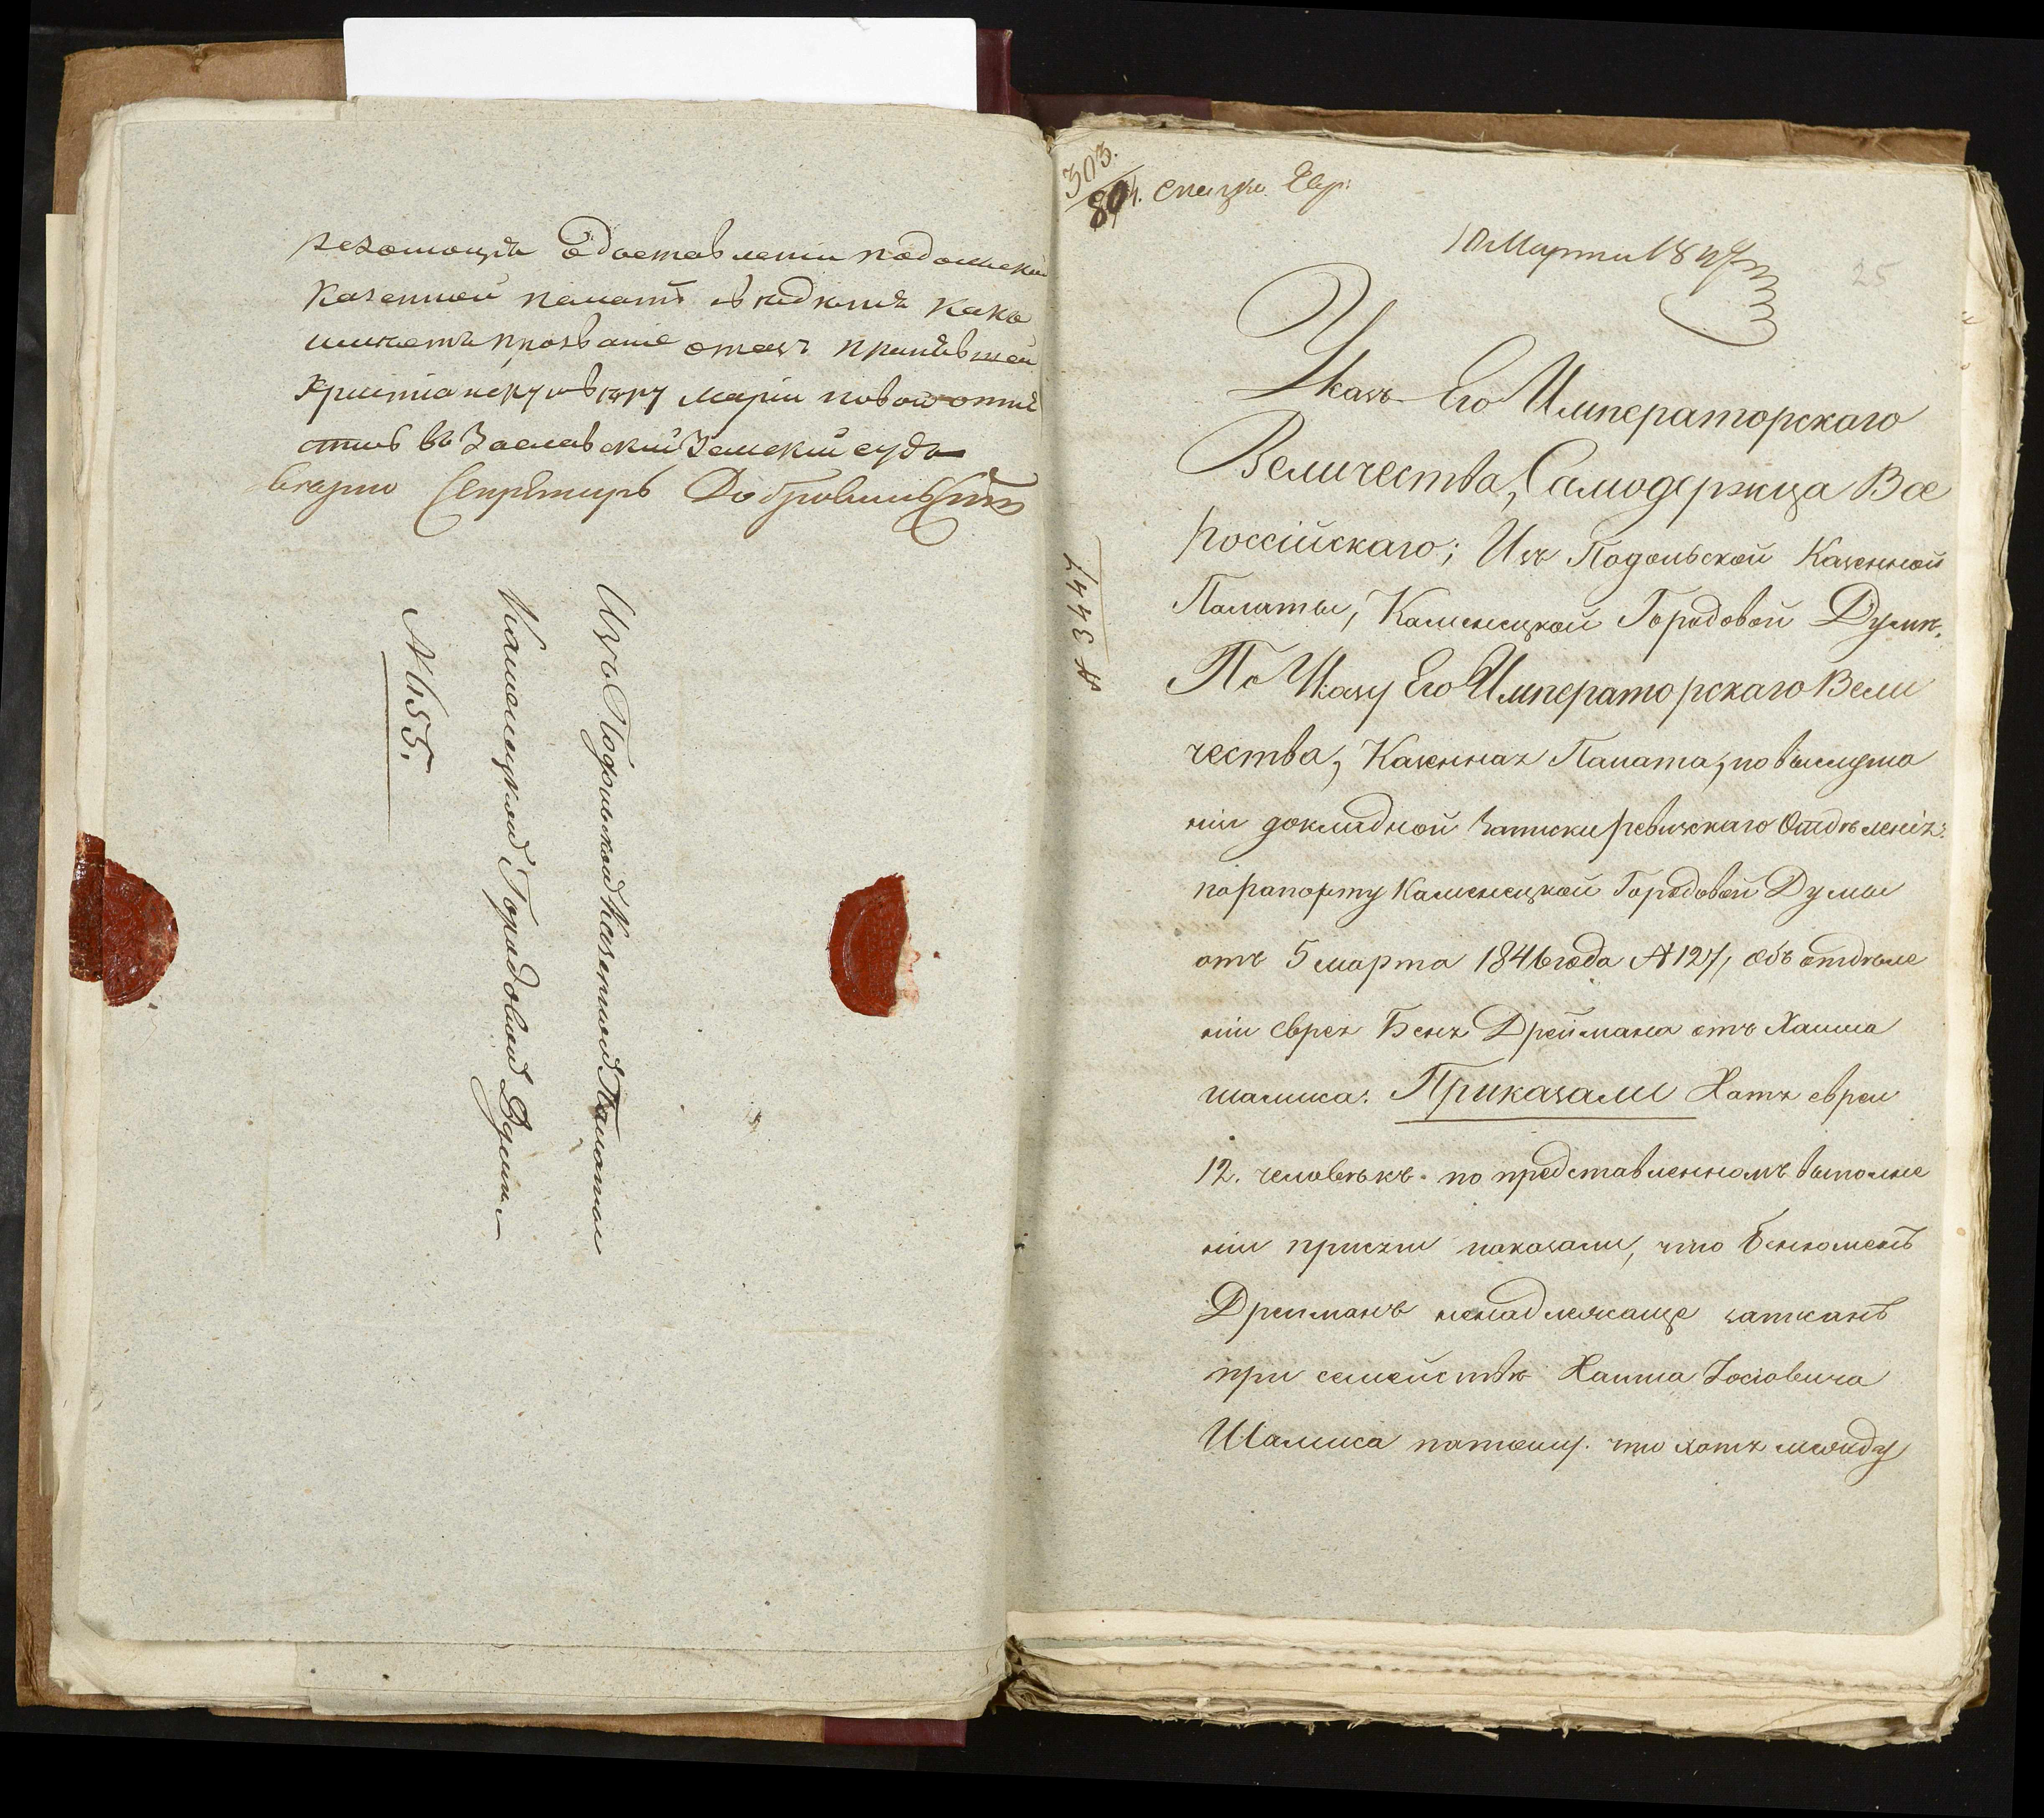 резолюціи о доставленіи Подольской
Казенной палатѣ свѣдѣнія какъ
имѣетъ прозваніе отецъ принявшей
Христіанскую вѣру Маріи новой отнес
тись въ Заславскій Земскій судъ
Секретарь
Изъ Подольской Казенной Палаты
Каменецкой Городовой Думѣ
№ 655.
303.
80 Евр:
Марта 1847
25
№ 3447
Указъ Его Императорскаго
Величества, Самодержца Все
россійскаго; Изъ Подольской Казенной
Палаты, Каменецкой Городовой Думѣ.
По Указу Его Императорскаго Вели
чества, Казенная Палата, по выслуша
ніи докладной записки ревизскаго Отдѣленія:
по рапорту Каменецкой Городовой Думы
отъ 5 марта 1846 года № 127, объ отдѣле
ніи еврея Беня Дреймана отъ Хаима
шамиса: Приказали Хотя евреи
12. человѣкъ по представленномъ выполне
ніи присяги показали, что Бенюменъ
Дрейманъ ненадлежаще записанъ
при семействѣ Хаима Іосіовича
Шамиса потому. что хотя между